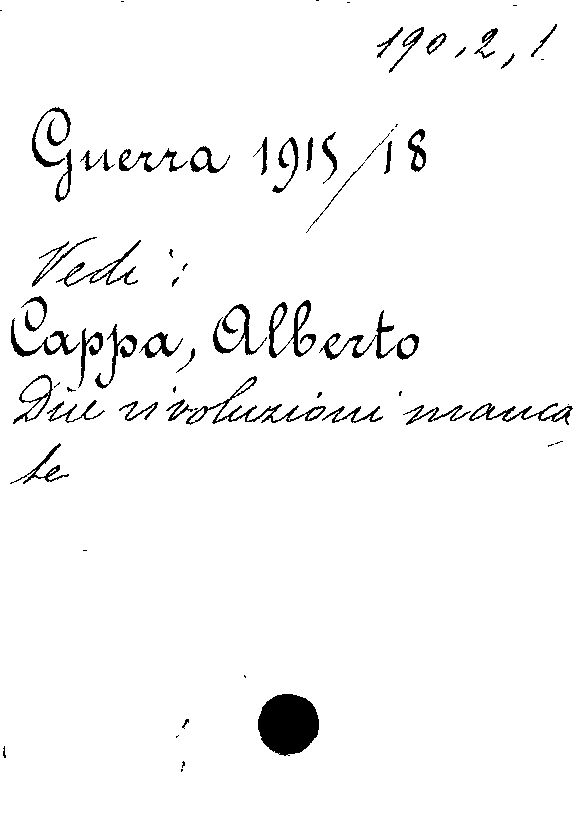 190.2,1
Guerra 1915/18
Vedi:
Cappa, Alberto
Due rivoluzioni manca-
te